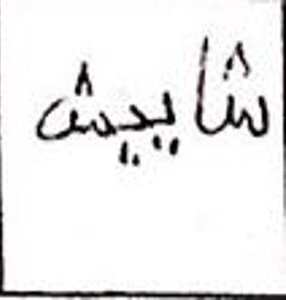 شاييش